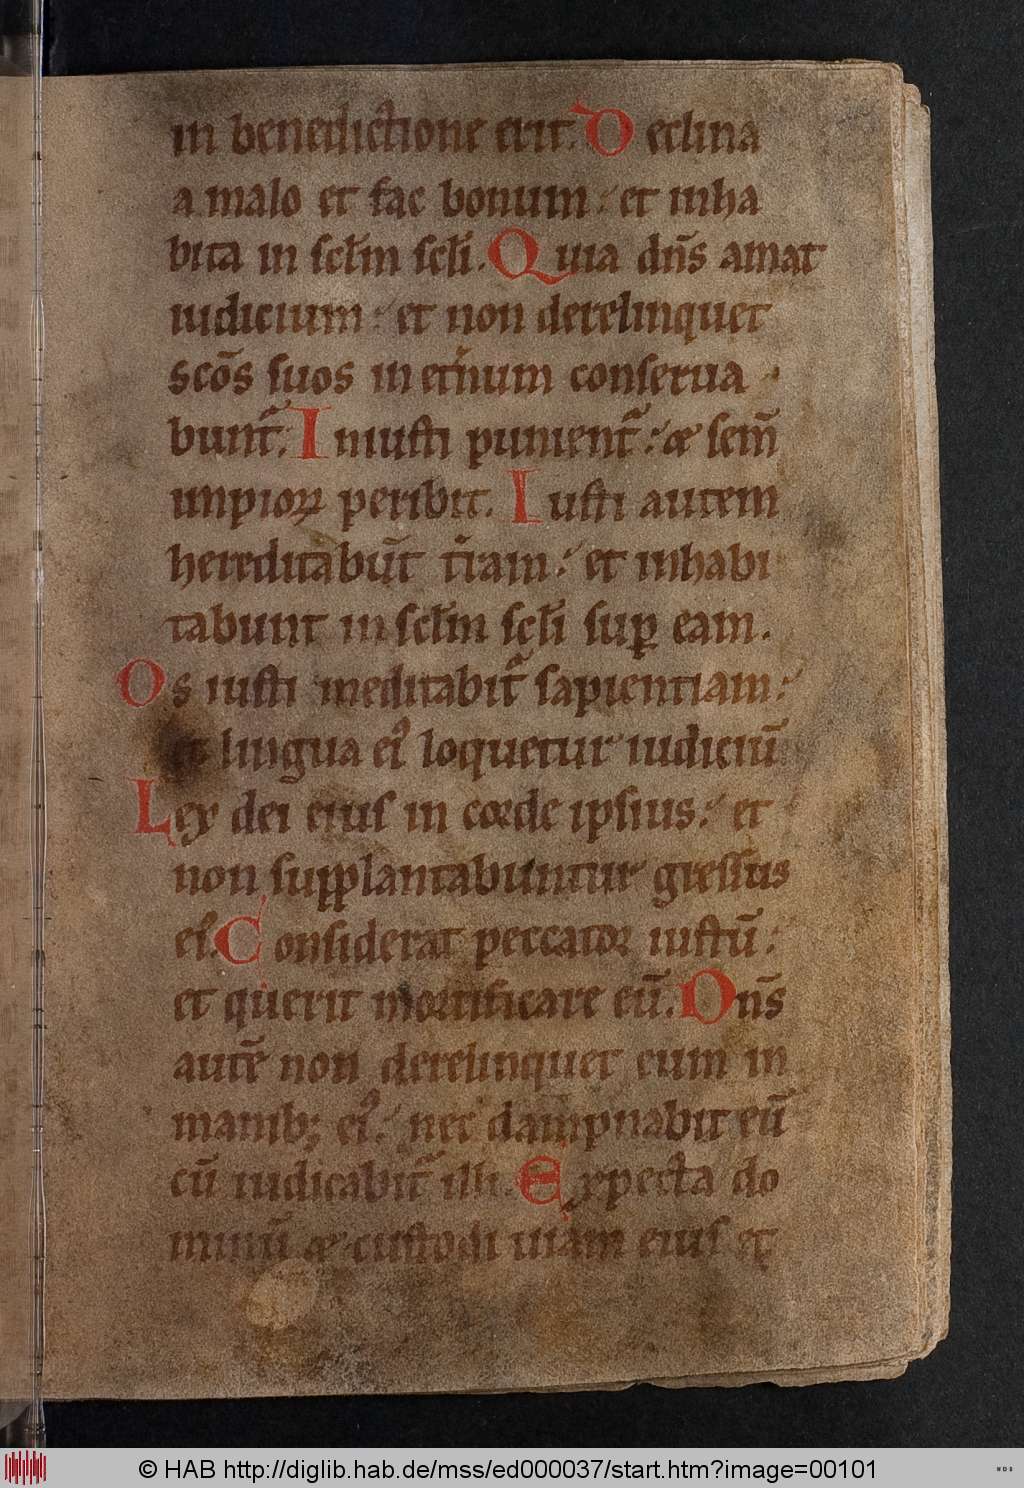 in benedictione erit. Declina
a malo et fac bonum: et inha
bita in sclm̄ scl̄i. Quia dn̄s amat
iudicium: et non derelinquet
scōs suos in et̄num conserua
bunt᷑. Iniusti punient᷑: & sem̄
impioꝝ peribit. Iusti autem
hereditabūt t̄ram: et inhabi
tabunt in scl̄m scl̄i suꝑ eam.
Os iusti meditabit᷑ sapientiam:
et lingua ei᷒ loquetur iudiciū
Lex dei eius in corde ipsius: et
non supplantabuntur gressus
ei᷒. Considerat peccator iustū:
et querit mortificare eū. Dn̄s
autē non derelinquet eum in
manib; ei᷒: nec dampnabit eū
cū iudicabit᷑ illi. Expecta do
minū & custodi uiam eius et
© HAB http://diglib.hab.de/mss/ed000037/start.htm?image=00101